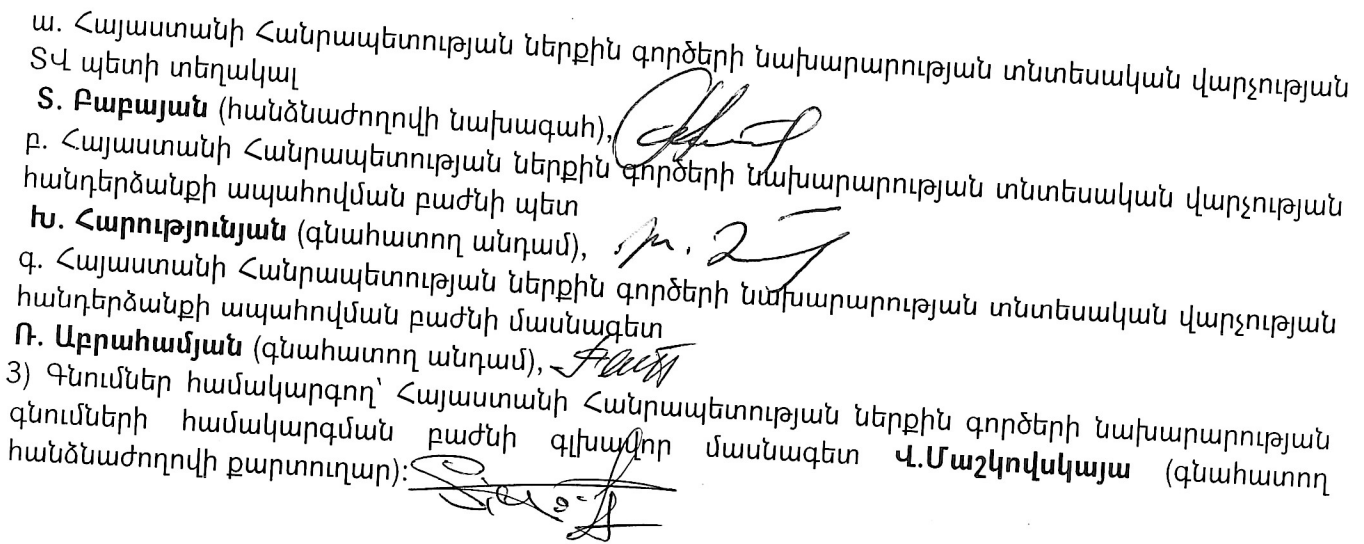 ա. Հայաստանի Հանրապետության ներքին գործերի նախարարության տնտեսական վարչության
ՏՎ պետի տեղակալ
Տ. Բաբայան (հանձնաժողովի նախագահ),
բ. Հայաստանի Հանրապետության ներքին գործերի նախարարության տնտեսական վարչության
հանդերձանքի ապահովման բաժնի պետ
Խ. Հարությունյան (գնահատող անդամ),
գ. Հայաստանի Հանրապետության ներքին գործերի նախարարության տնտեսական վարչության
հանդերձանքի ապահովման բաժնի մասնագետ
Ռ. Աբրահամյան (գնահատող անդամ),
3) Գնումներ համակարգող՝ Հայաստանի Հանրապետության ներքին գործերի նախարարության
գնումների համակարգման բաժնի գլխավոր մասնագետ Վ.Մաշկովսկայա (գնահատող
հանձնաժողովի քարտուղար):